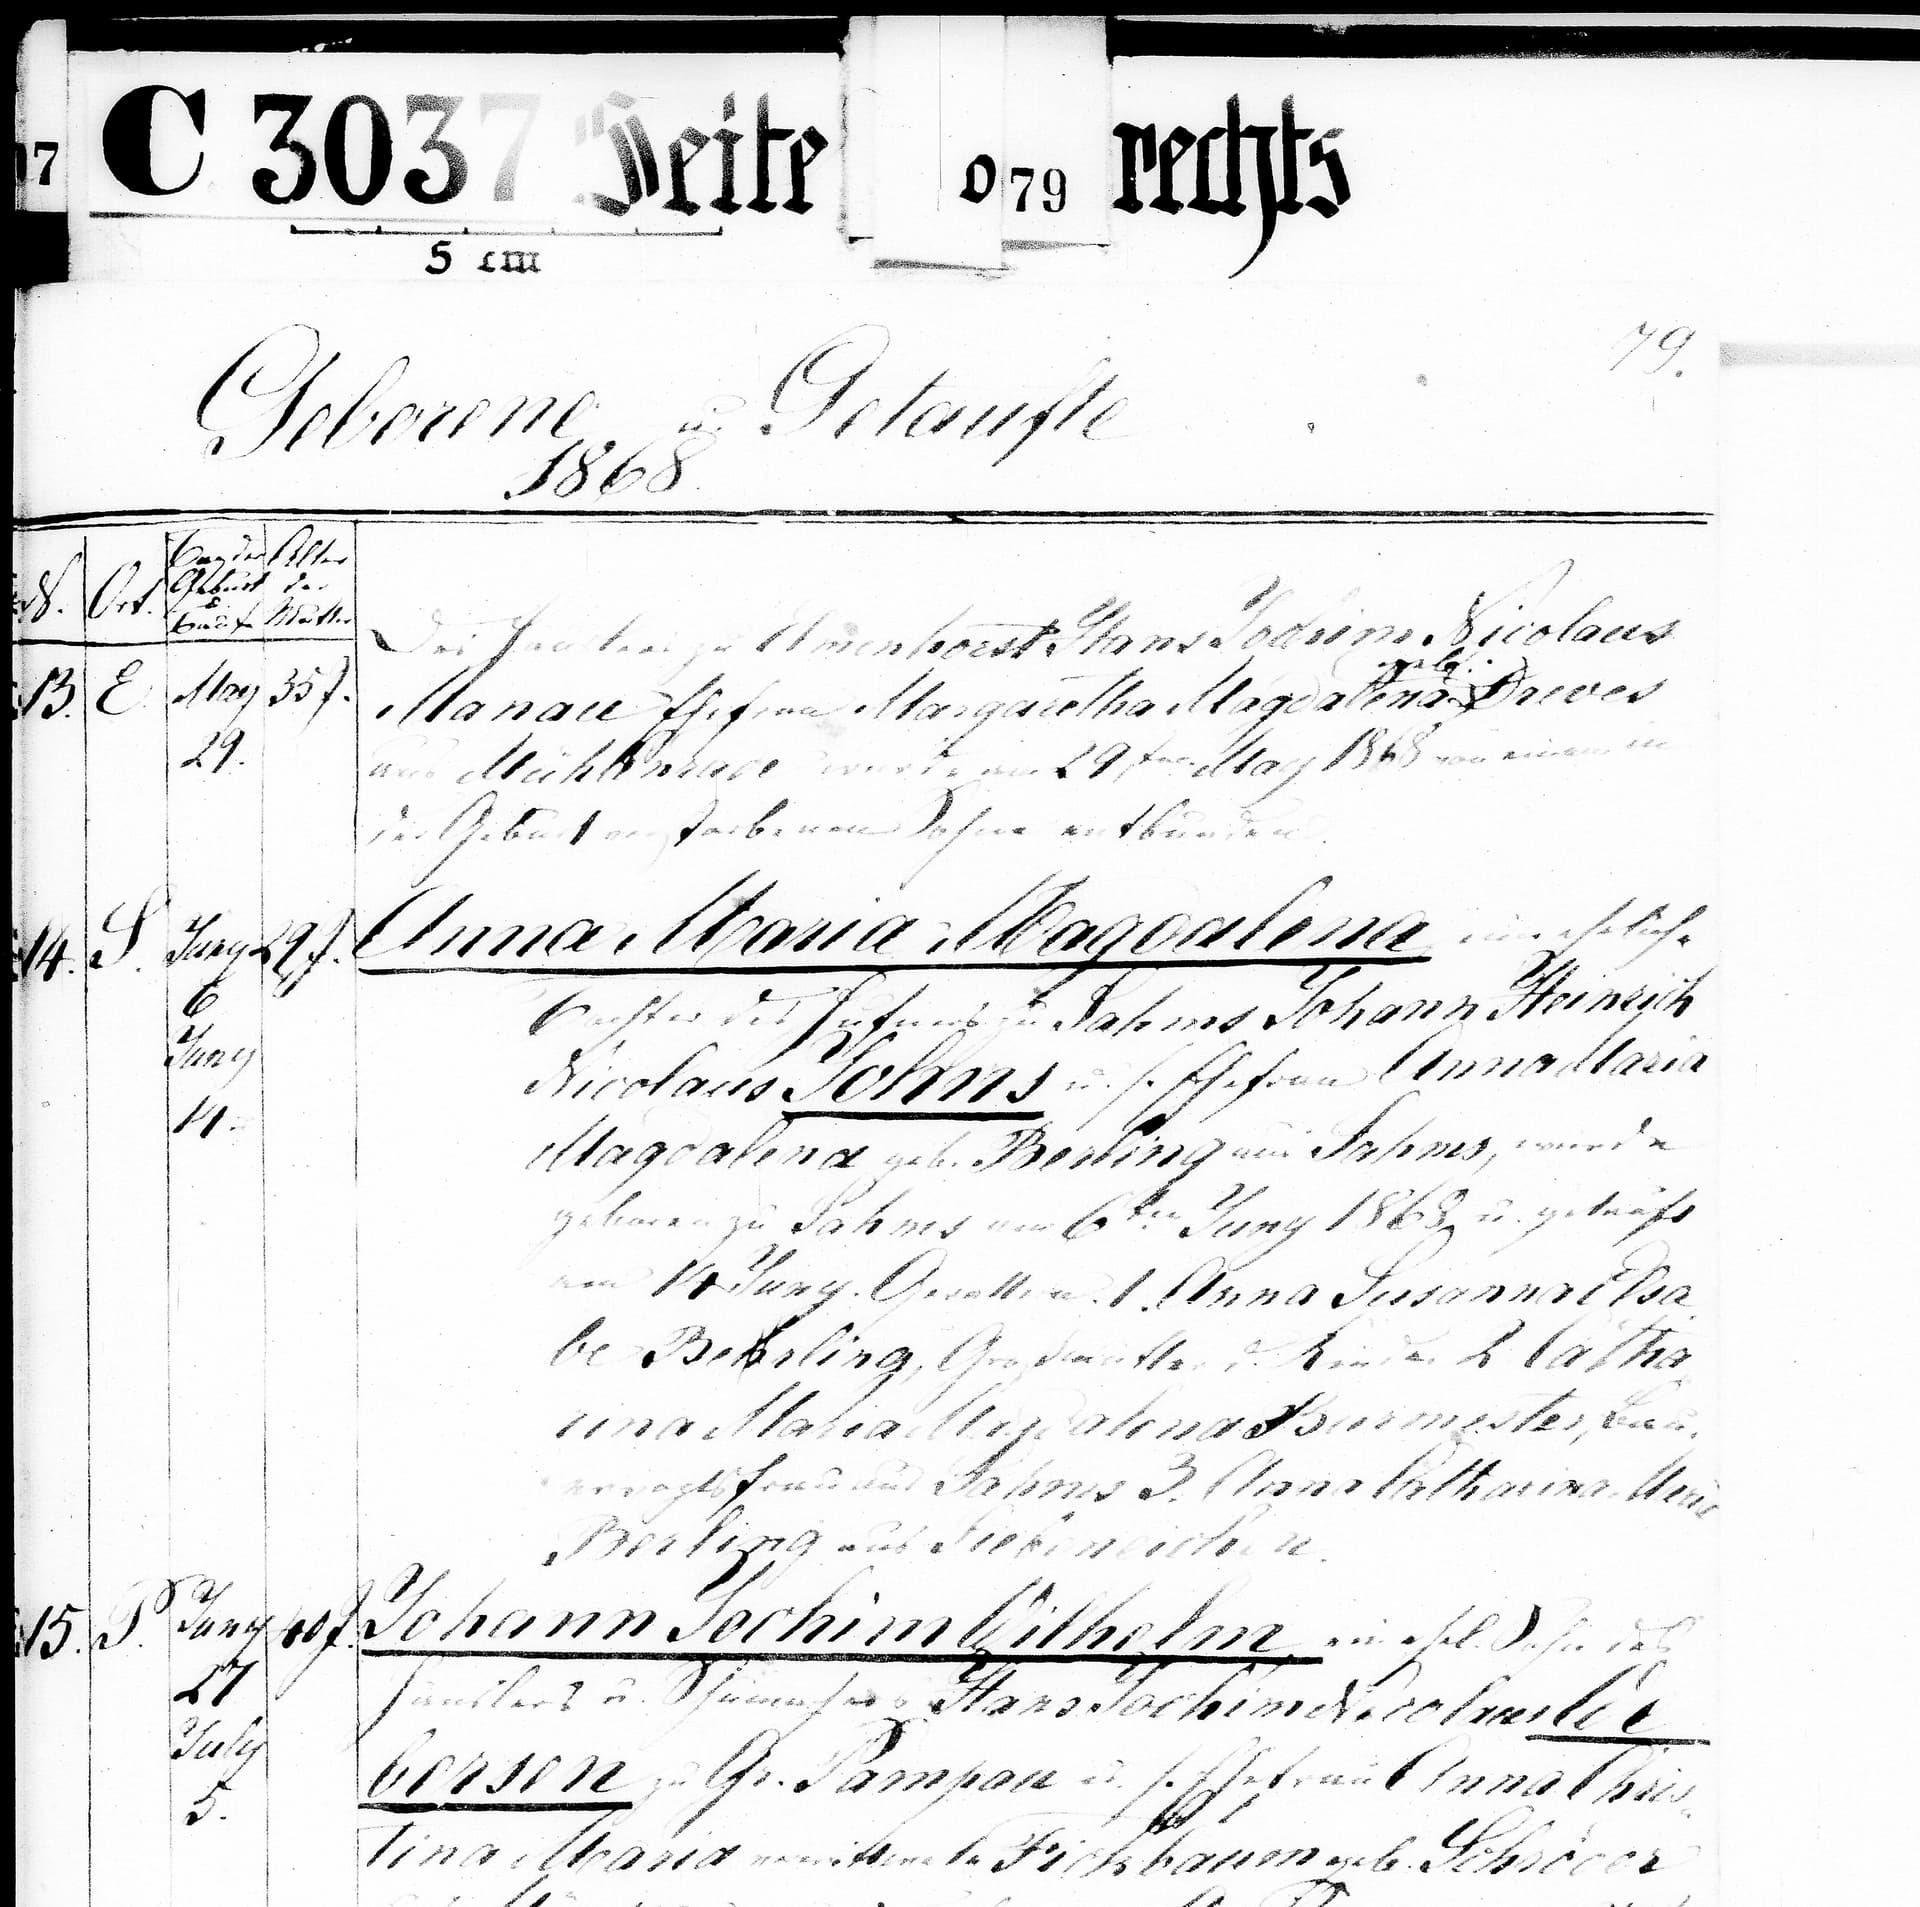 7 C 3037 Seite 079 rechts
5 cm
79.
Geborene u. Getaufte
1868.
N. Ort. Tag der Geburt & Taufe Alter der Mutter
Des zu Hans Jochim Nicolaus
13. E. May 35 J. Manau Ehefrau Margaretha Magdalena geb. Dreves
29. aus Mühlenrade wurde am 29sten May 1868 von einem in
der Geburt verstorbenen Sohne entbunden.
14. S. Juny 29 J. Anna Maria Magdalena eine eheliche
6 Tochter des Hufners zu Sahms Johann Heinrich
Juny Nicolaus Johns u. s. Ehefrau Anna Maria
14. Magdalena geb. Berling aus Sahms, wurde
geboren zu Sahms am 6ten Juny 1868 u. getauft
am 14 Juny. Gevattern. 1. Anna Susanna Elsa
be Behrling, Großmutter d. Kindes 2 Catha
rina Maria Magdalena Burmester, Bau,
ervogtsfrau aus Sahms 3. Anna Catharina Marie
Berling aus Siebeneichen.
15. P. Juny 40 J. Johann Jochim Wilhelm ein ehel. Sohn des
27 Häuslers u. Hans Jochim Nicolaus
July bersen zu Gr. Pampau u. s. Ehefrau Anna Chris,
5. tina Maria verwittwete geb. Schröder